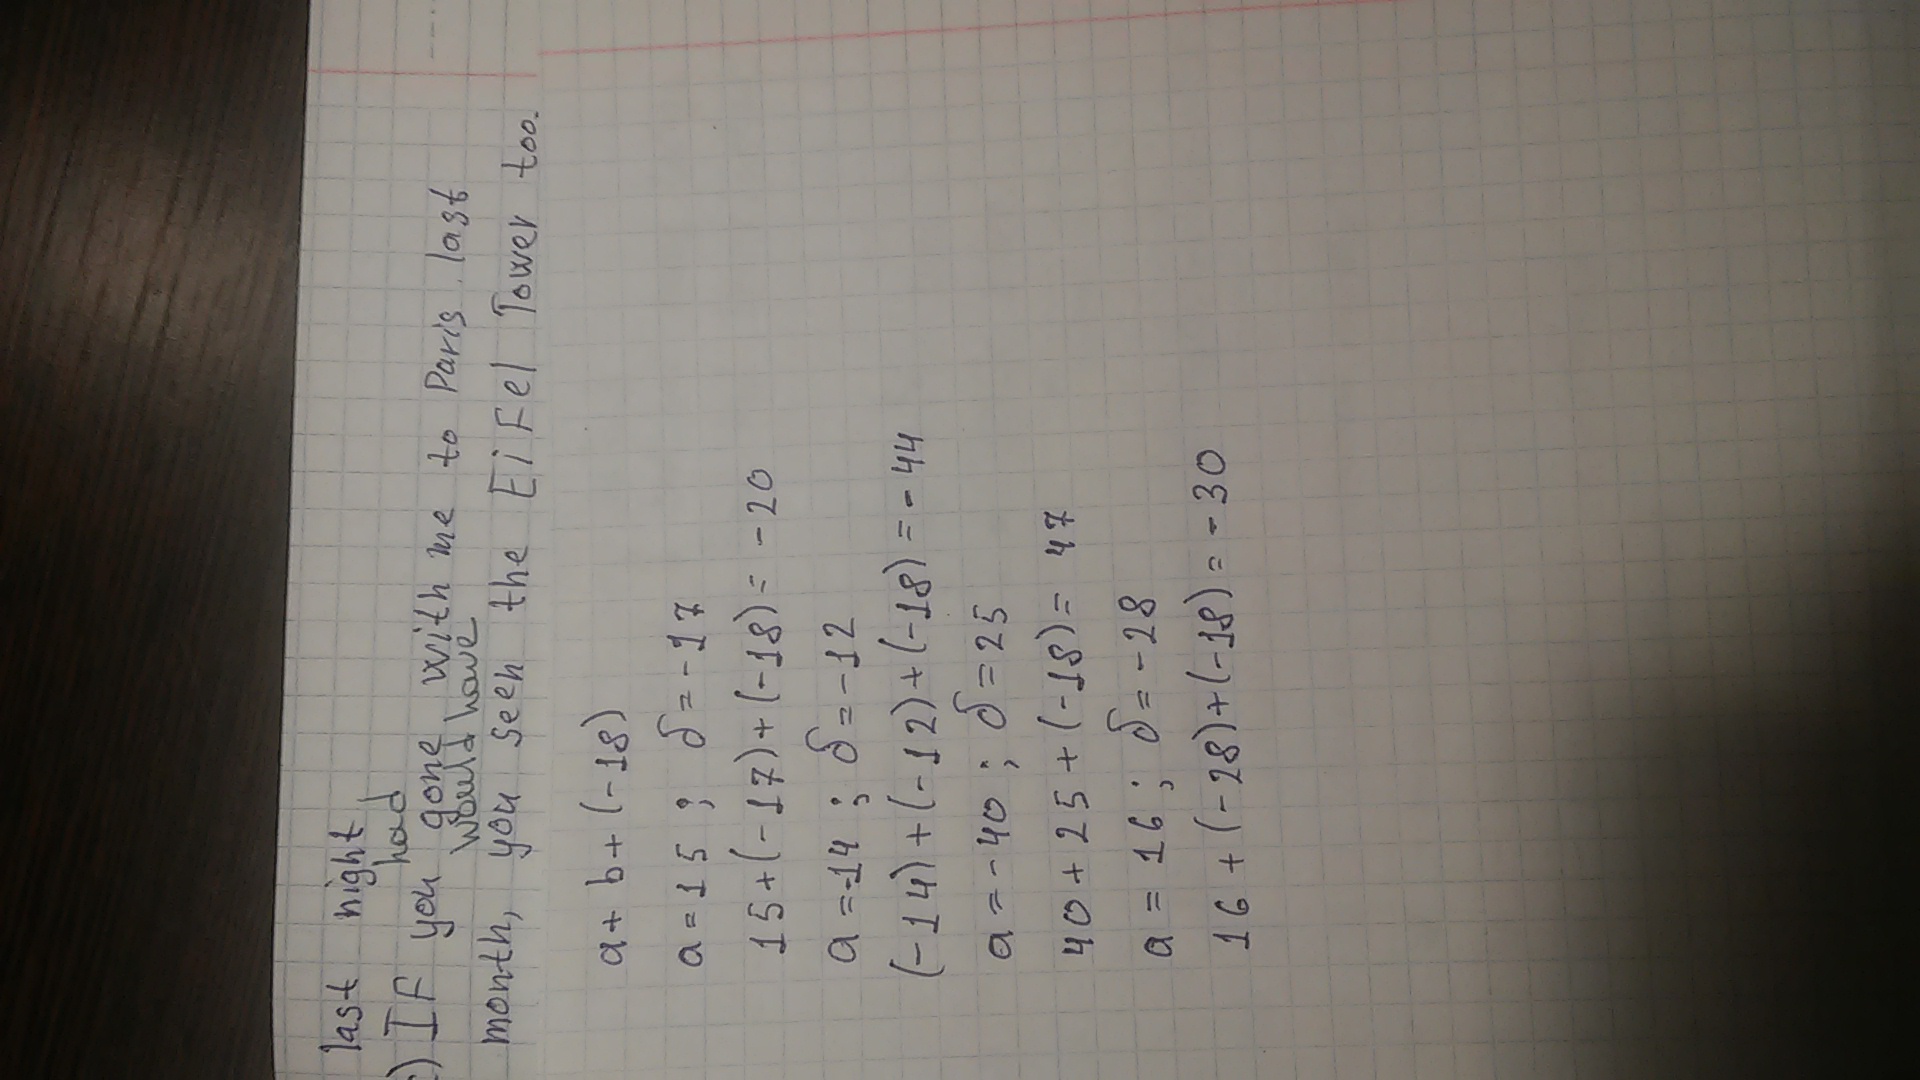 last night
c) IF you had gone with me to Paris last
month, you would have seen the EiFel Tower too.
a + b + (-18)
a = 15 ; б = -17
15 + (-17) + (-18) = -20
a = -14 ; б = -12
(-14) + (-12) + (-18) = -44
a = -40 ; б = 25
40 + 25 + (-18) = 47
a = 16 ; б = -28
16 + (-28) + (-18) = -30